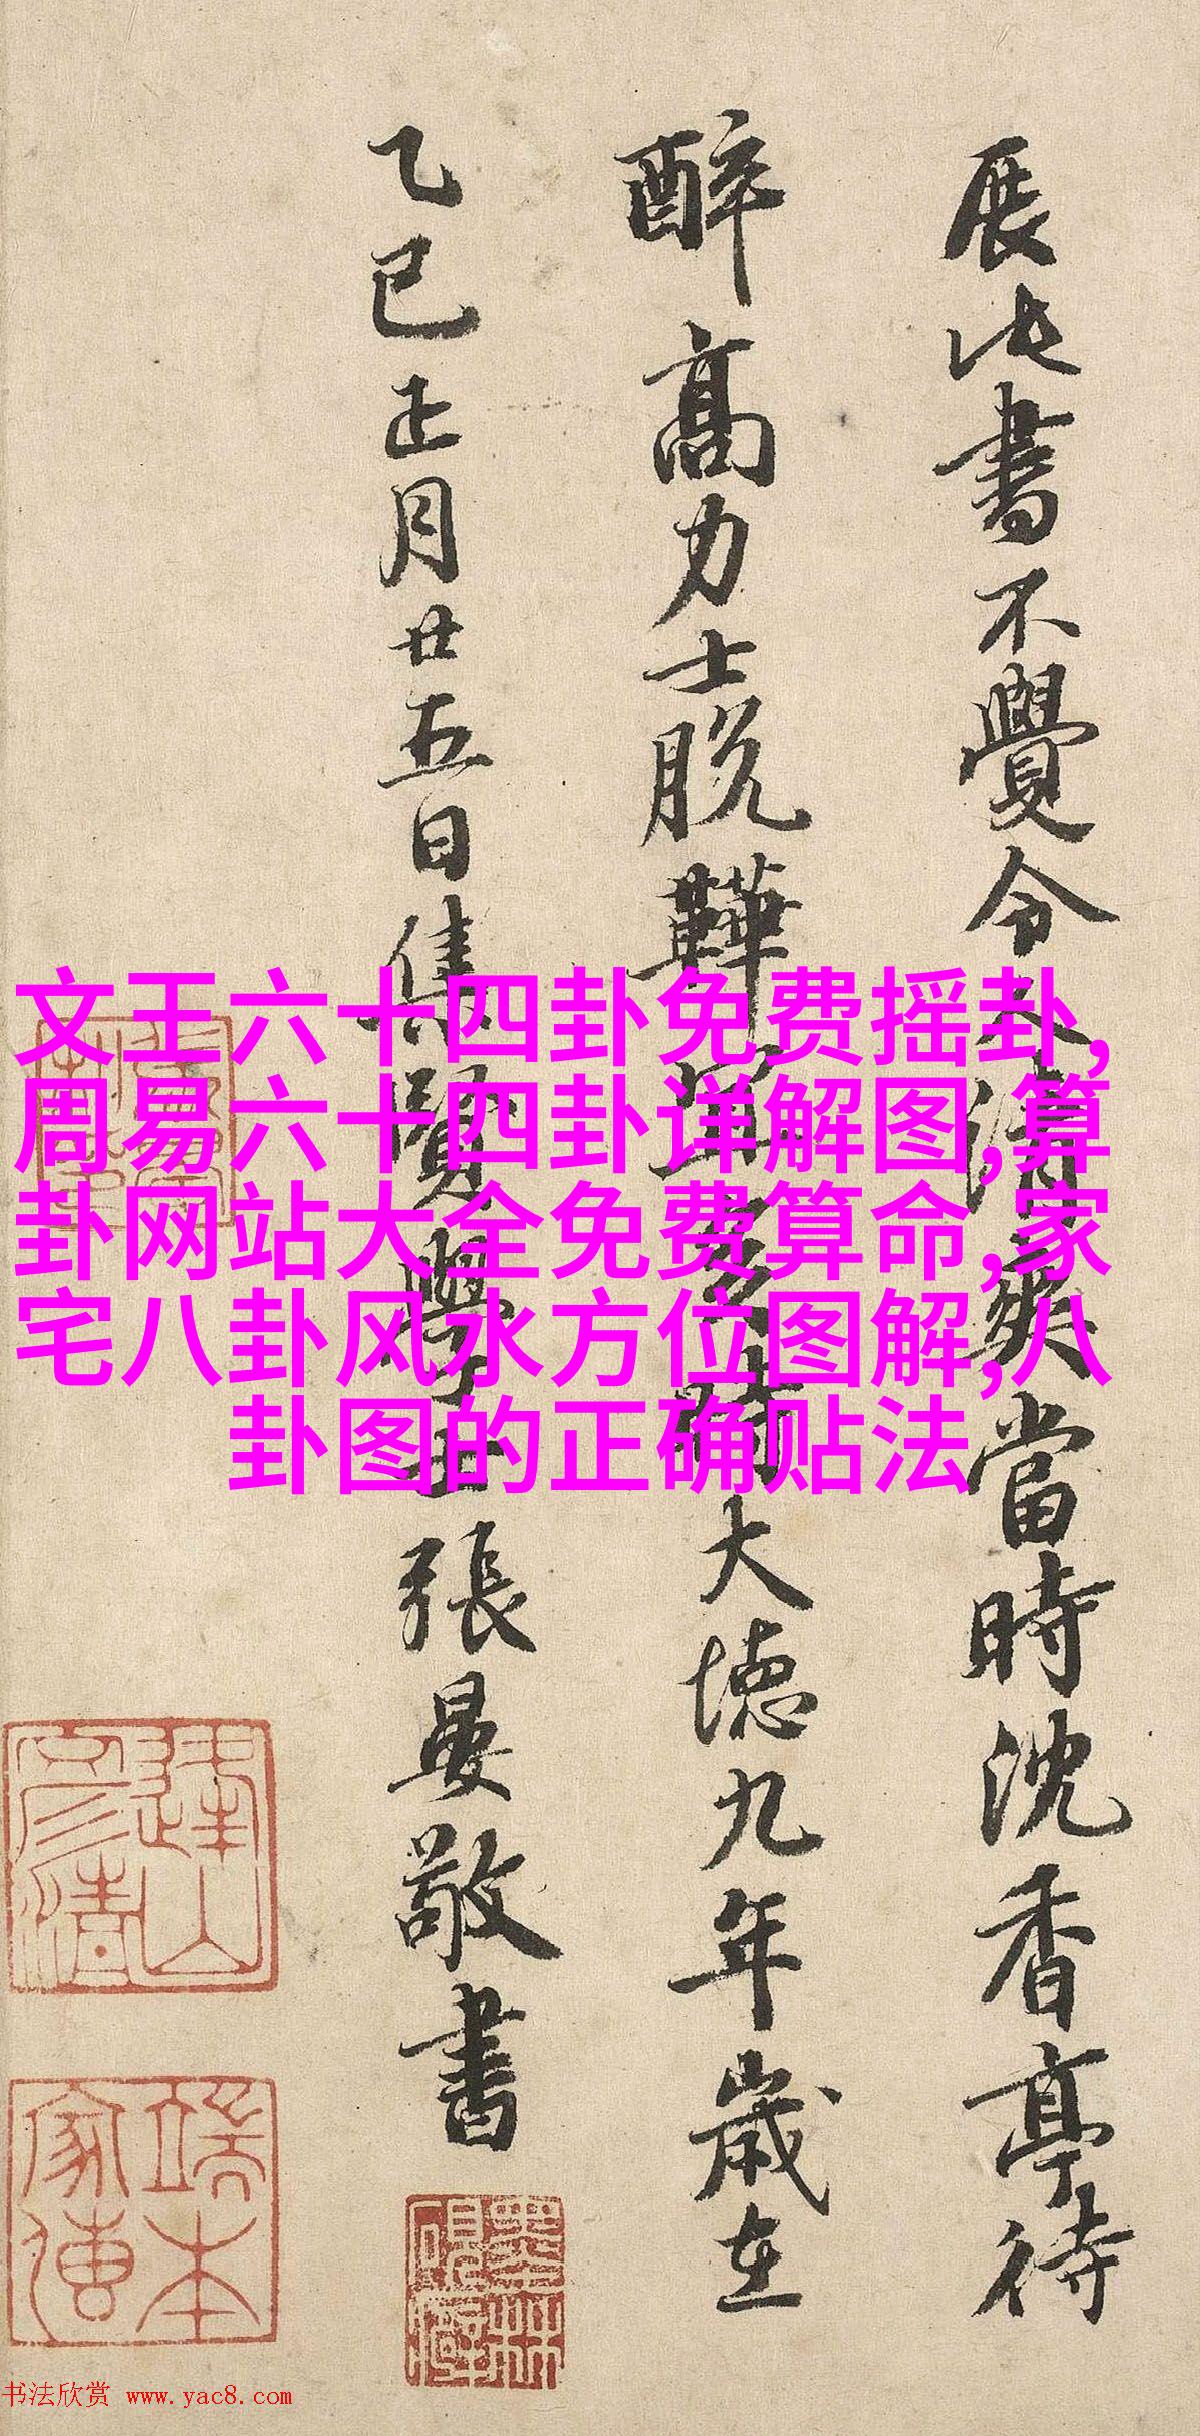 展此書不覺令人清爽當時沈香亭待
醉高力士脱鞾宜多時大德九年歲在
乙巳正月廿五日集賢學士張晏敬書
文王六十四卦免费摇卦,
周易六十四卦详解图,算
卦网站大全免费算命,家
宅八卦风水方位图解,八
卦图的正确贴法
書法欣赏 www.yac8.com